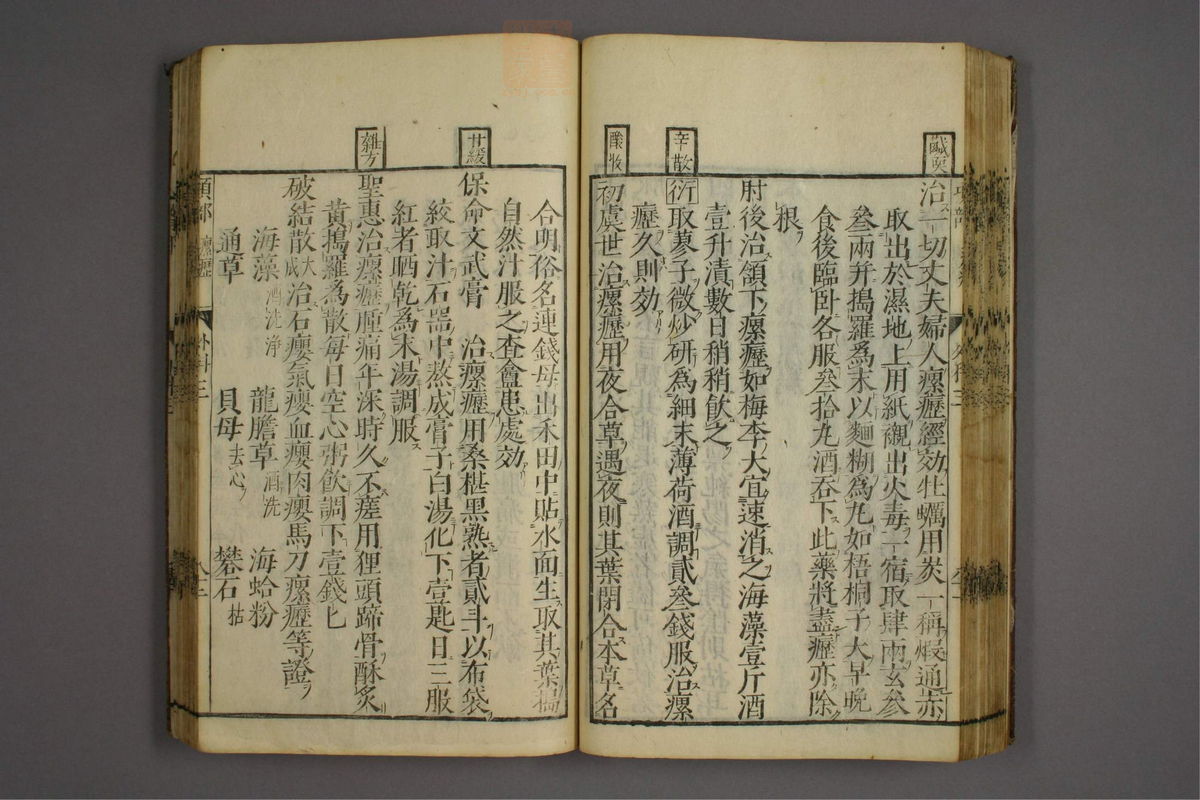 鹹耎
治一切丈夫婦人瘰癧經効牡蠣用炭一稱煅通赤
取出於濕地上用紙襯出火毒一宿取肆兩玄參
叄兩并搗羅爲末以麵糊為丸如梧桐子大早晚
食後臨臥各服叄拾丸酒吞下此藥將盡癧亦除
根
肘後治頷下瘰癧如梅李大宜速消之海藻壹斤酒
壹升漬數日稍稍飲之
辛散
衍取蔓子微炒研為細末薄荷酒調貳叄錢服治瘰
癧久則効
酸收
初虞世治瘰癧用夜合草遇夜則其葉閉合本草名
合明俗名連錢母出禾田中貼水面生取其葉搗
自然汁服之查盦患處効
甘緩
保命文武膏 治瘰癧用桑椹黑熟者貳斗以布袋
絞取汁石器中熬成膏子白湯化下壹匙日三服
紅者晒乾為末湯調服
雜方
聖惠治瘰癧腫痛年深時久不瘥用狸頭蹄骨酥炙
黃搗羅為散每日空心粥飲調下壹錢匕
破結散大成治石癭氣癭血癭肉癭馬刀瘰癧等證
海藻酒洗淨 龍膽草酒洗 海蛤粉
通草 貝母去心 礬石枯
項部 瘰癧 外科三